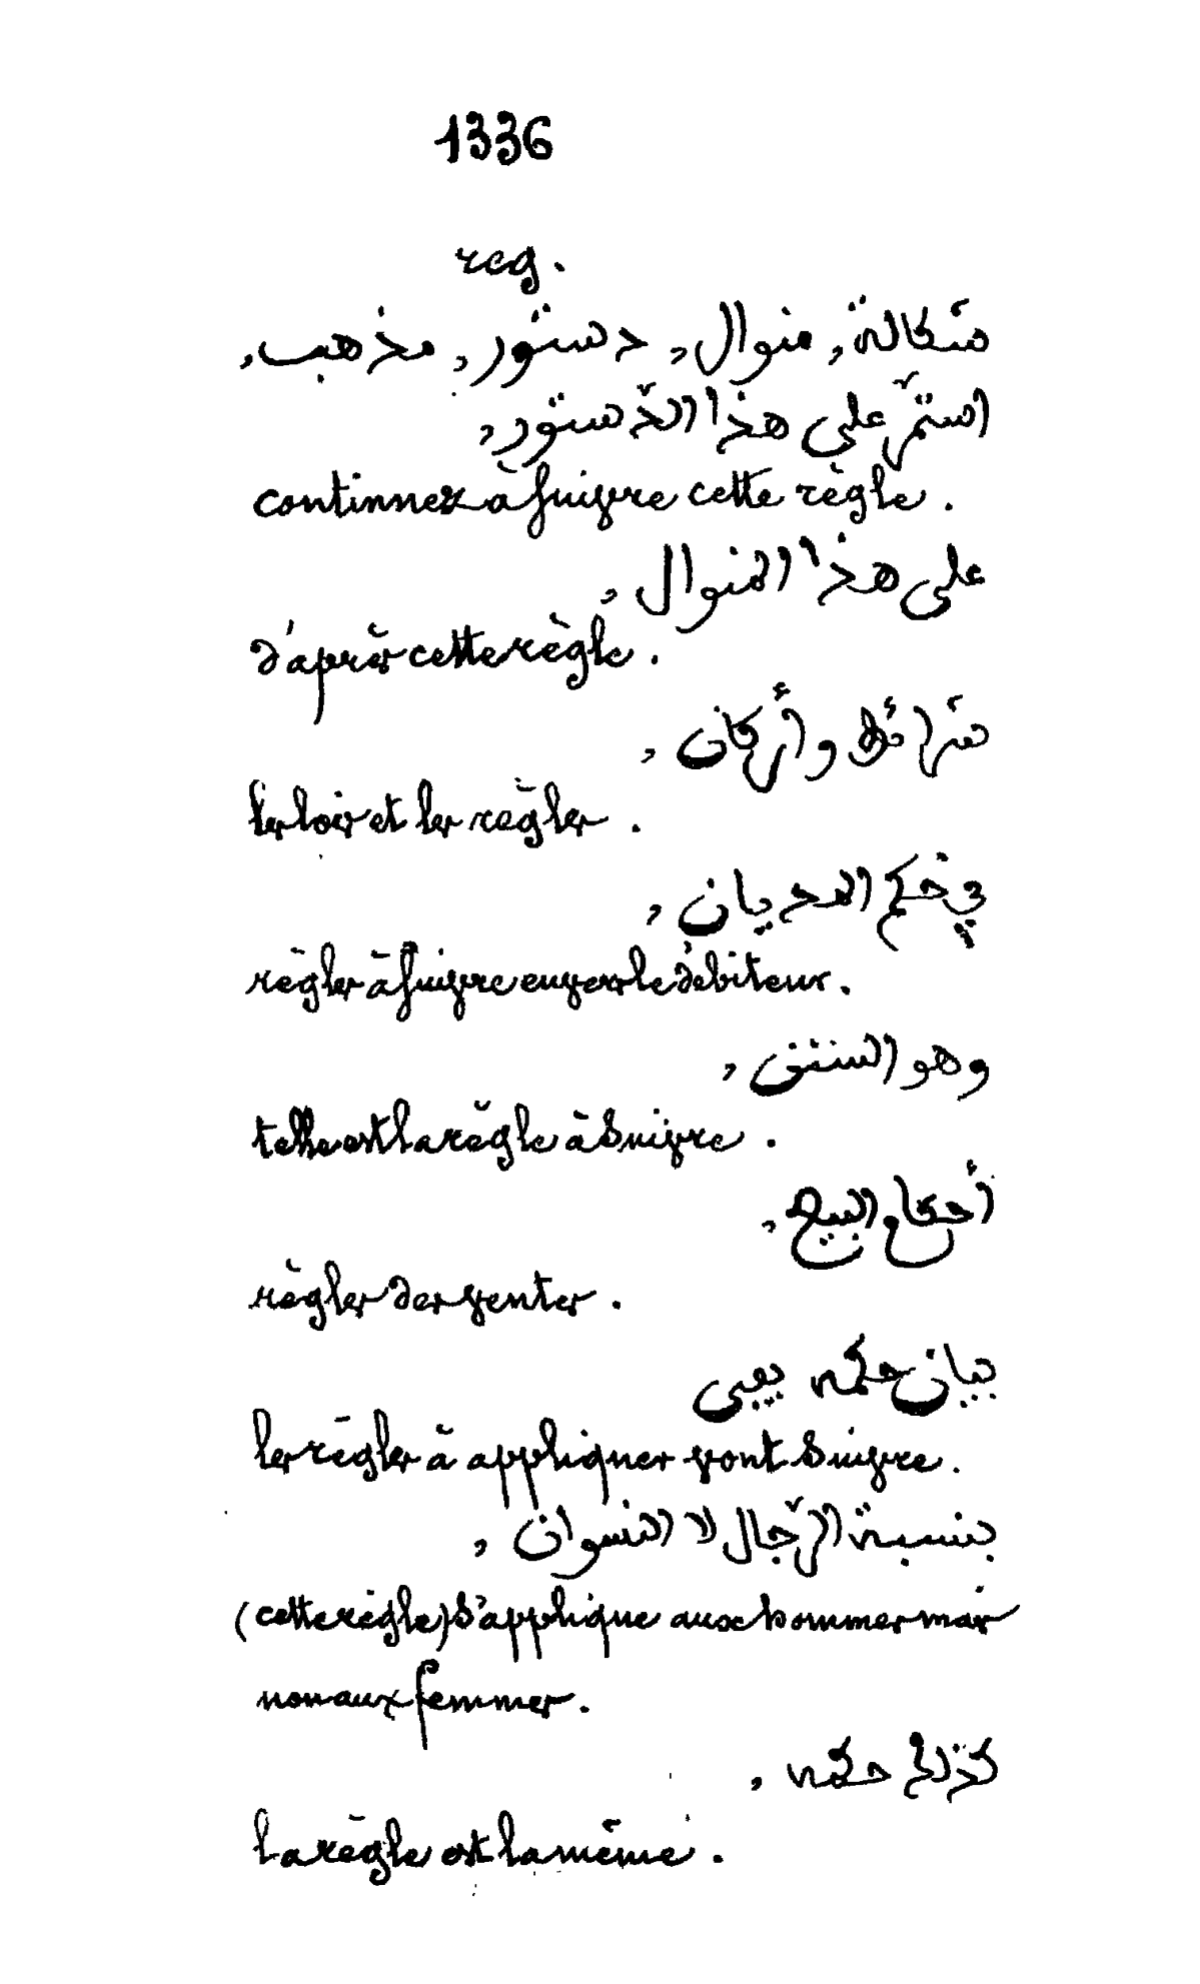 1336
reg.
شكالة, منوال, دستور, مذهب,
استمرّ على هذا الدّستور,
continuez à suivre cette règle.
على هذا المنوال,
d'après cette règle.
شرائط وأركان,
les lois et les règles.
في حكم المديان,
règles à suivre envers le débiteur.
وهو السنن,
telle est la règle à suivre.
أحكام البيع,
règles des ventes.
بيان حكمه
les règles à appliquer vont suivre.
بنسبة الرّجال لا النسوان,
(cette règle) s'applique aux hommes mais
non aux femmes.
كذلك حكمه,
la règle est la même.